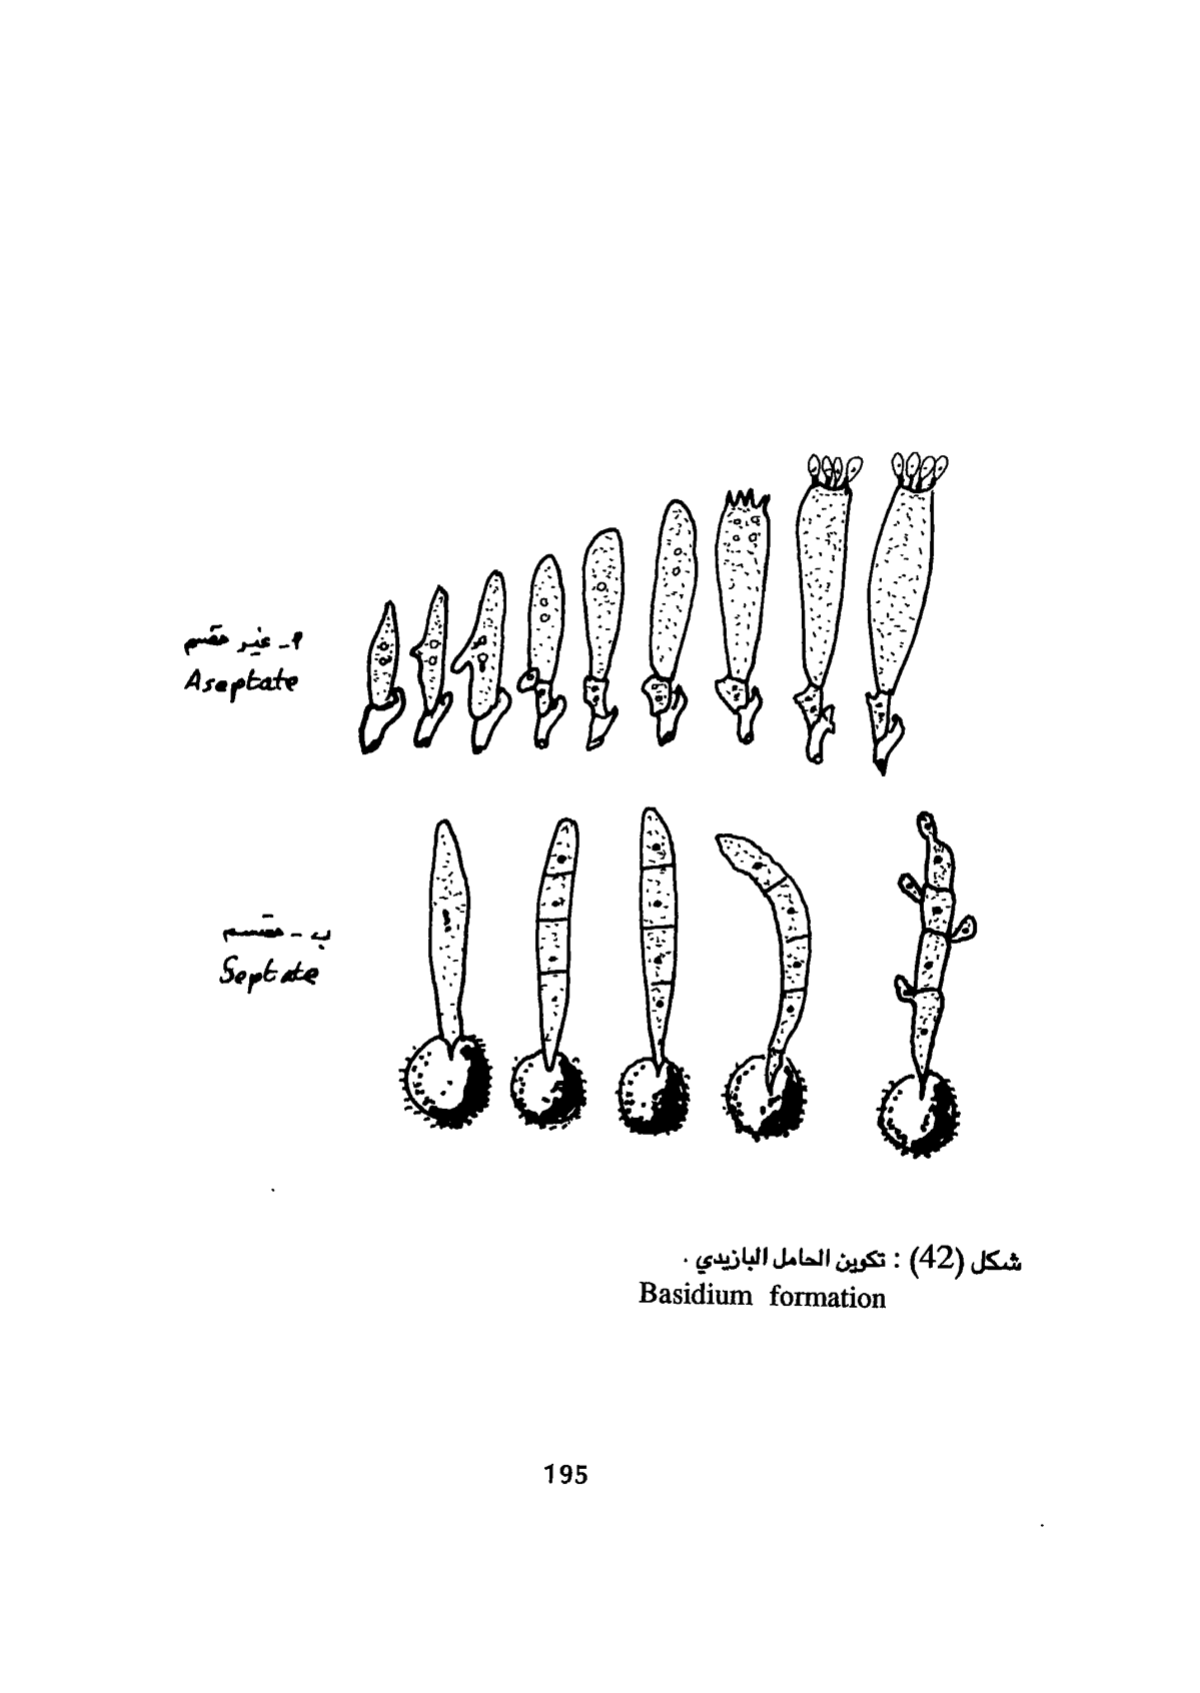 أ ـ غير مقسم
Aseptate
ب - مقسم
Septate
شكل (42) : تكوين الحامل البازيدي .
Basidium formation
195